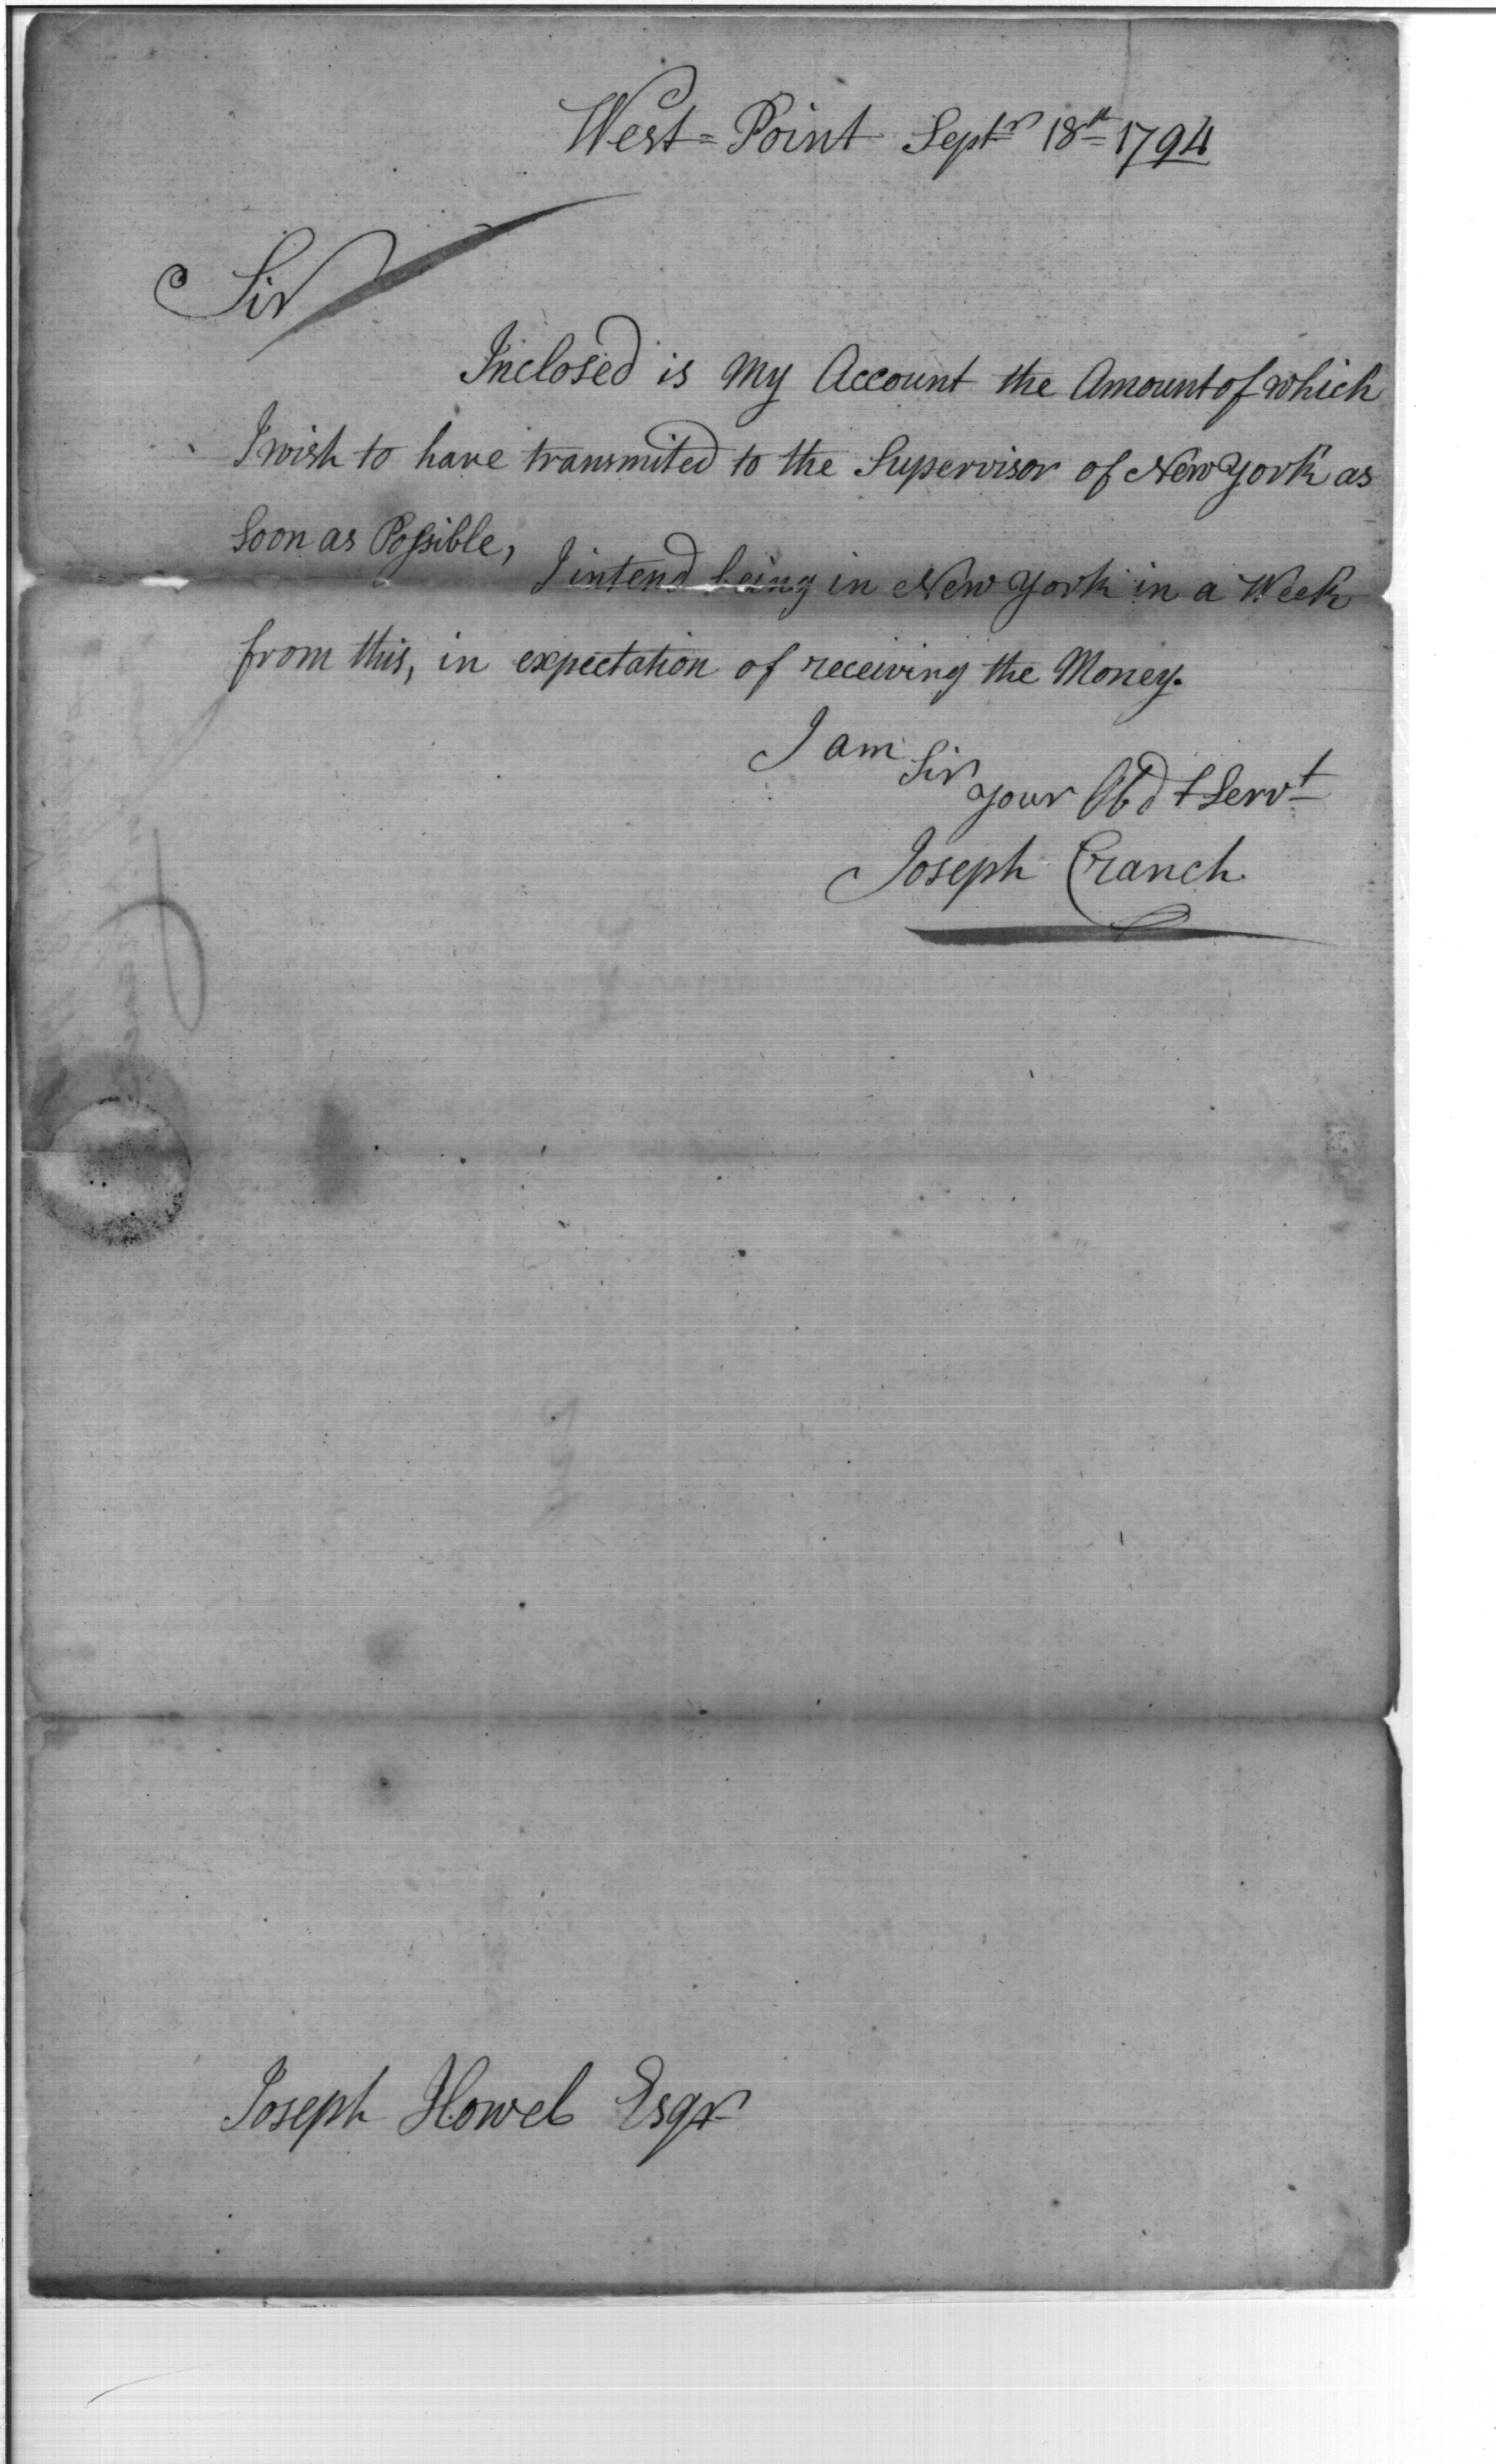 West=Point Septr 18th 1794
Sir
Inclosed is My Account the Amount of which
I wish to have transmited to the Supervisor of New York as
Soon as Possible,
I intend being in New York in a Week
from this, in expectation of receiving the Money.
I am
Sir
your Obdt Servt
Joseph Cranch
Joseph Howel Esqr